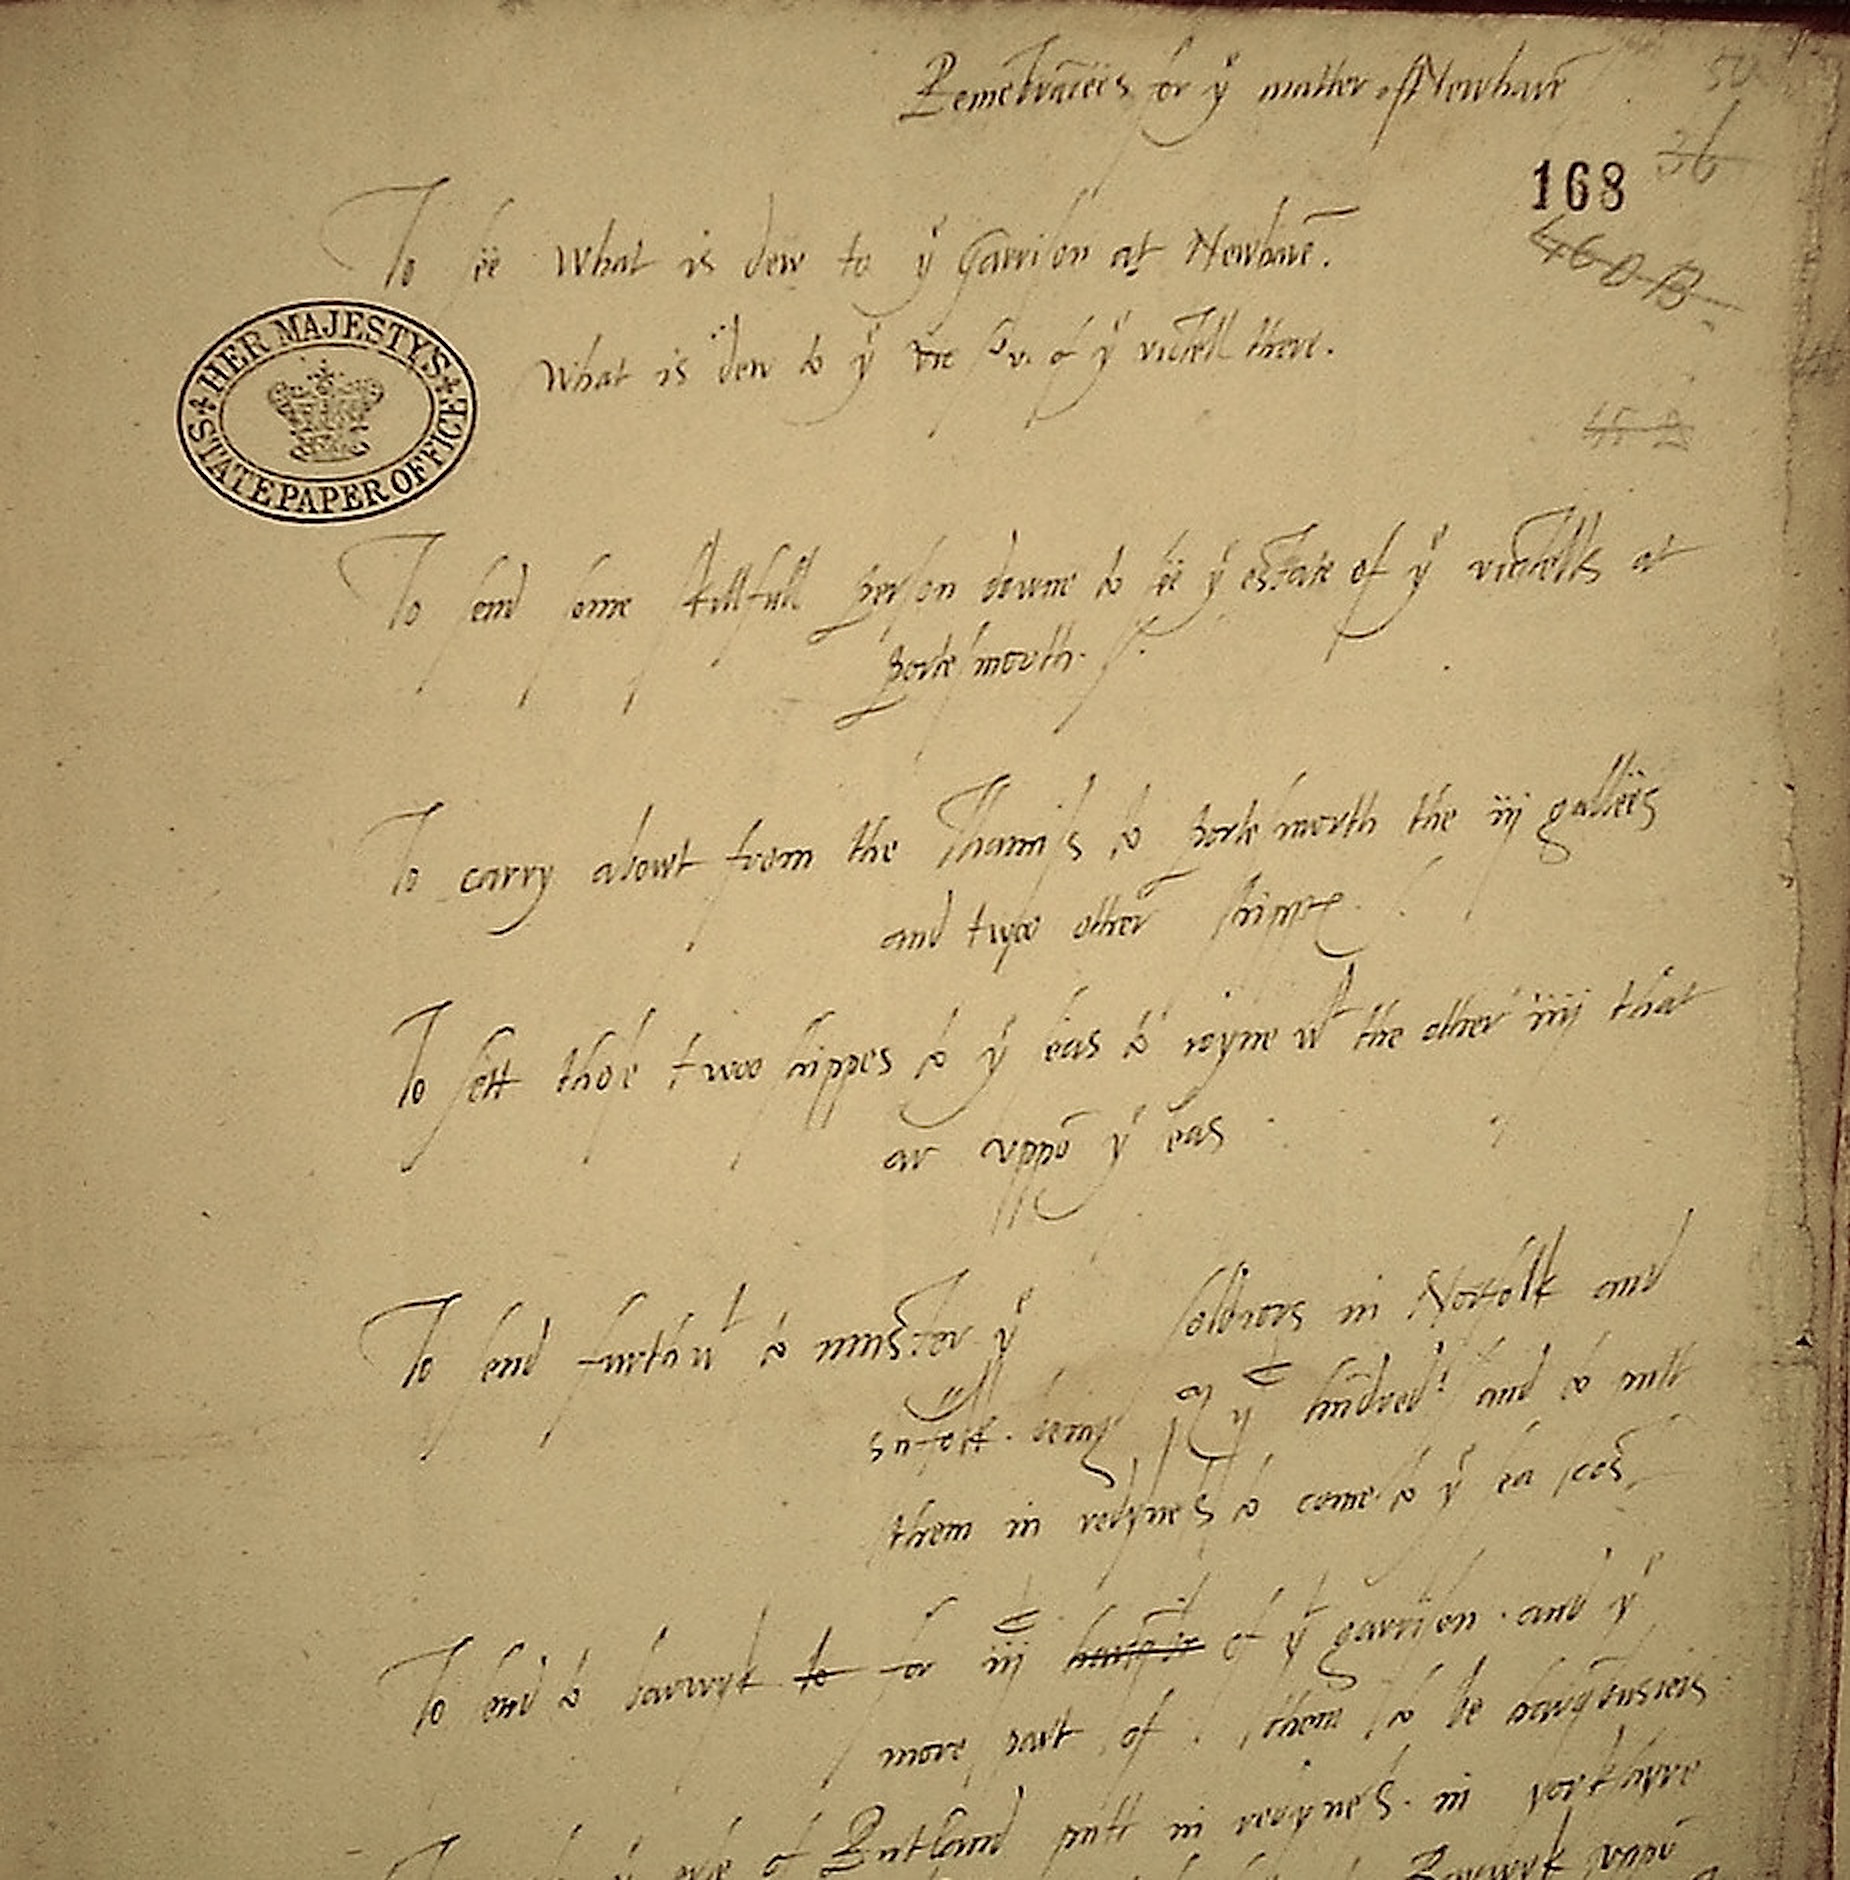 Remēbrācees for yͤ matter of Newhavē
50
36
168
460 B
To see what is dew to yͤ Garrison at Newhavē.
What is dew to yͤ of yͤ victell there.
HER MAJESTY'S STATE PAPER OFFICE
To send some skillfull person downe to see yͤ estate of yͤ victells at
portesmouth.
To carry abowt from the Thamiss to portesmouth the iij gallees
and twoo other shippes
To sett those twoo shippes to yͤ seas to ioyne wᵗ the other iiij that
ar uppō yͤ seas
To send furthwᵗ to muster yͤ soldiors in Norfolk and
Suffolk. being hūdred and to putt
them in redyness to come to yͤ sea cost
To send to barwyk to for iij of yͤ garrison. and yͤ
more part of them to be
erle of Rutland putt in redyness. in yorkshyre
Barwyk uppō